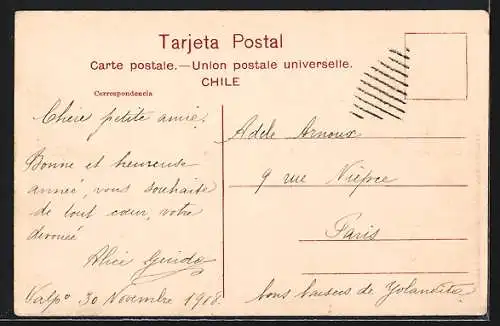 Tarjeta Postal
Carte postale.—Union postale universelle.
CHILE
Correspondencia
Chère petite amie,
Bonne et heureuse
année, vous souhaite
de tout cœur, votre
devouée
Alice Guido
Valpº 30 Novembre 1908.
Adele Arnoux
9 rue Niépce
Paris
bons baisers de Yolandita